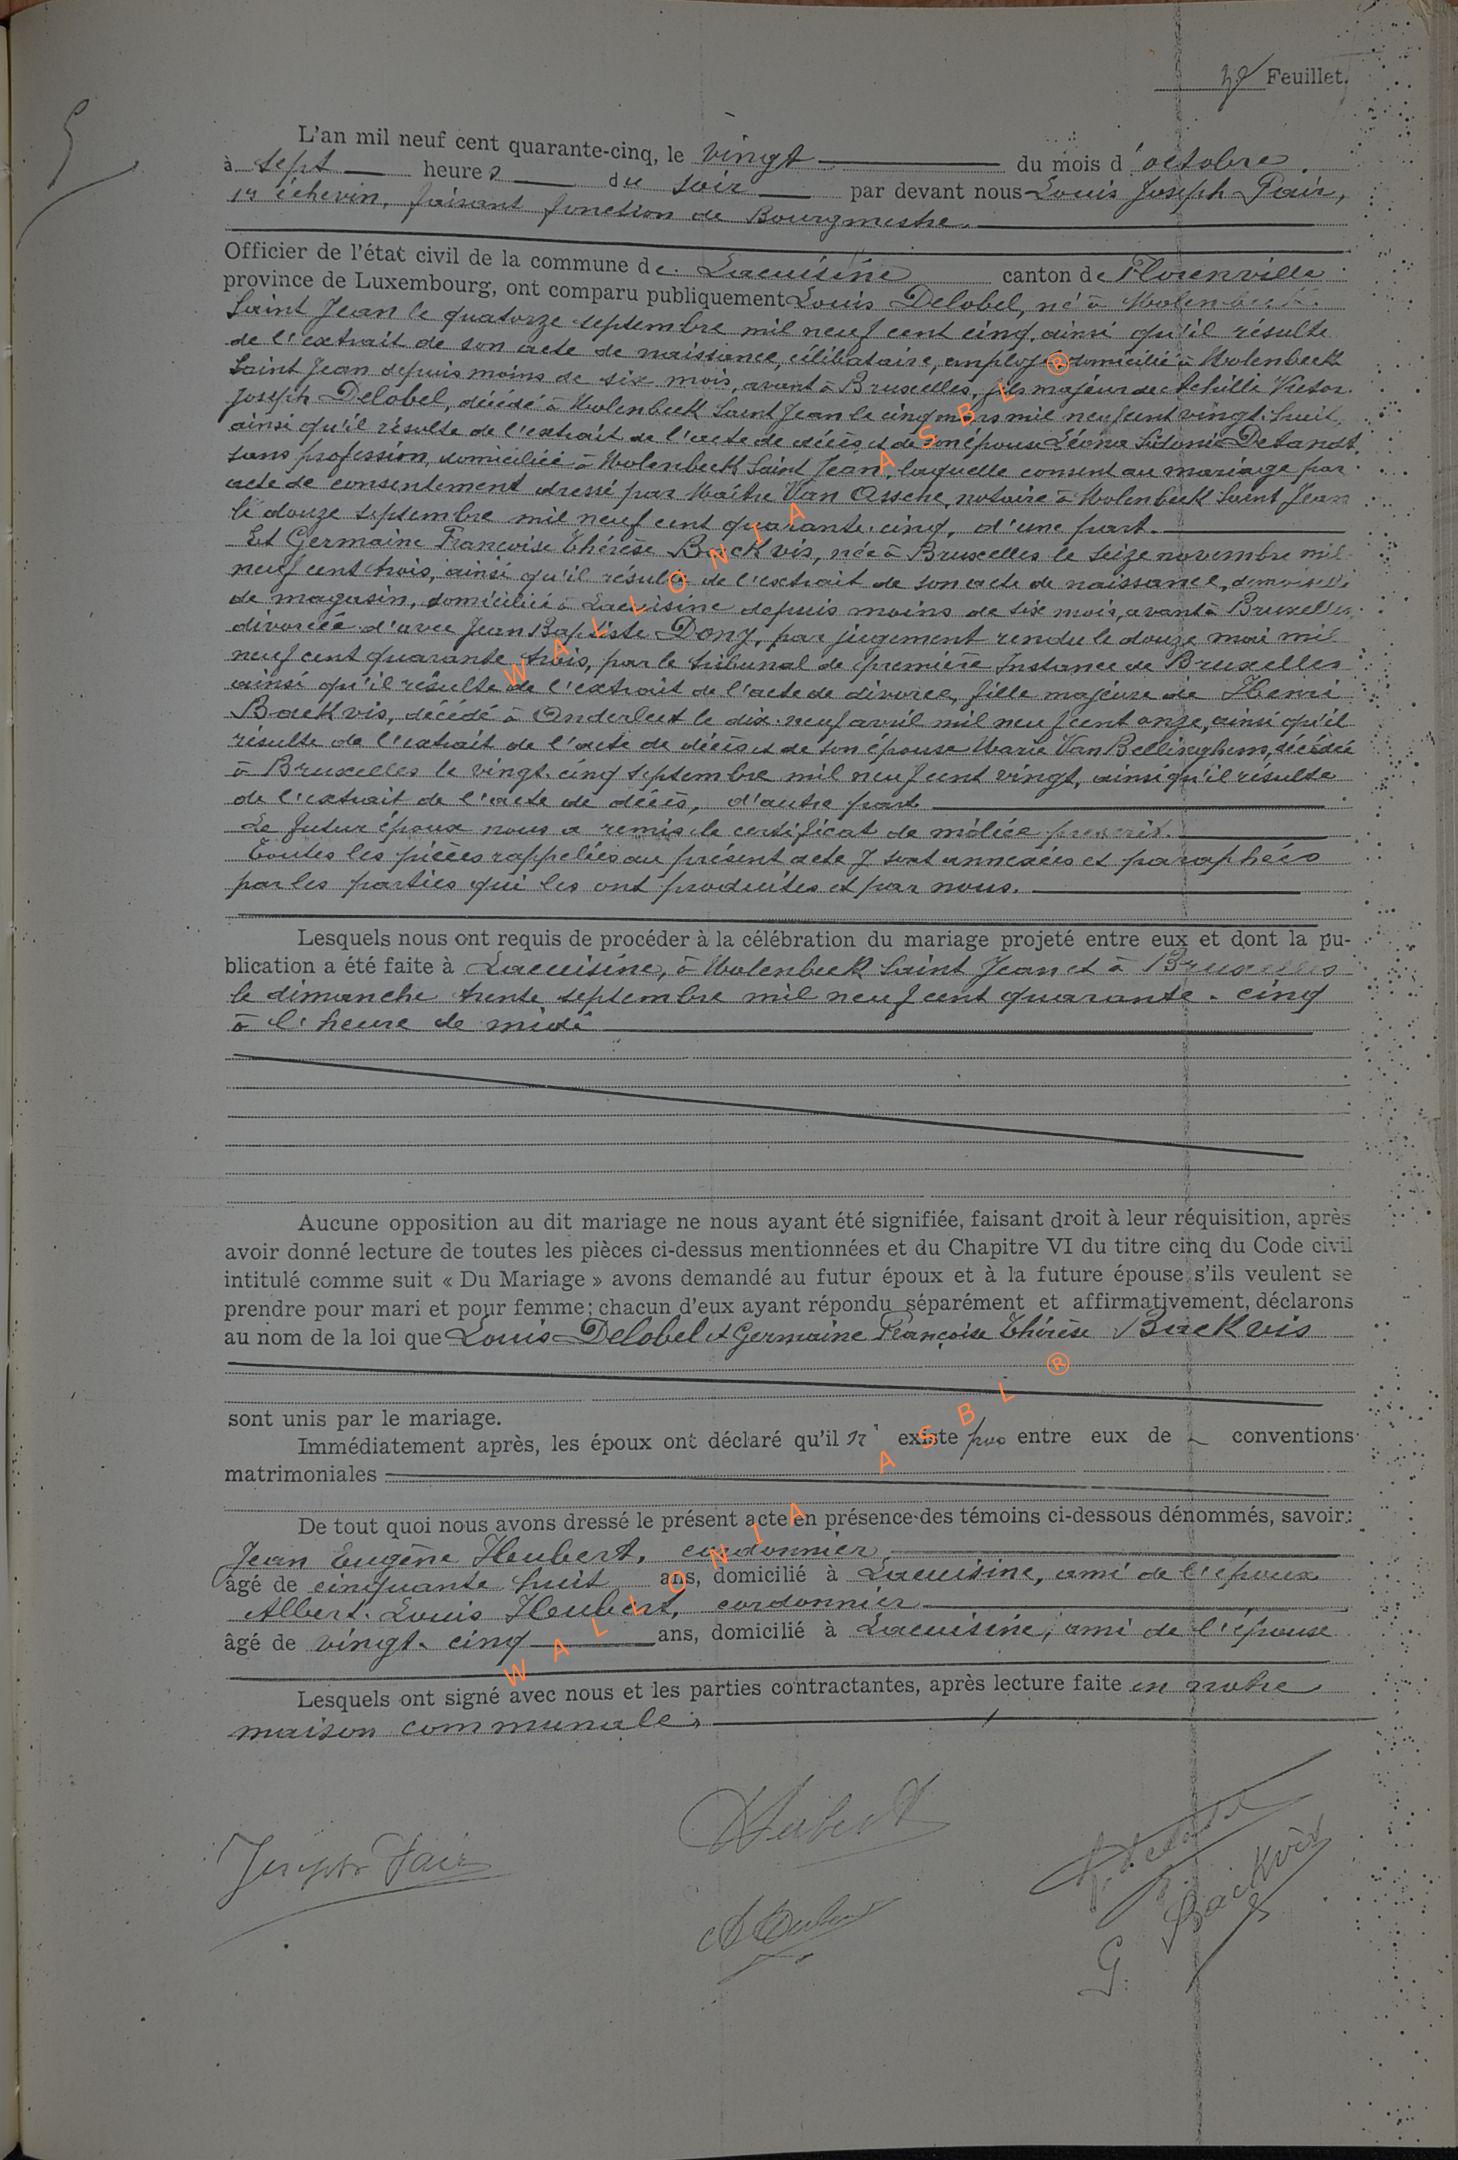 3e Feuillet.
5
L'an mil neuf cent quarante-cinq, le vingt du mois d'octobre
à sept heures du soir par devant nous Louis Joseph Pair,
1r échevin, faisant fonction de Bourgmestre.
Officier de l'état civil de la commune de Lacuisine canton de Florenville
province de Luxembourg, ont comparu publiquement Louis Delobel, né à Molenbeek
Saint Jean le quatorze septembre mil neuf cent cinq, ainsi qu'il résulte
de l'extrait de son acte de naissance, célibataire, employé domicilié à Molenbeek
Saint Jean depuis moins de six mois, avant à Bruxelles, fils majeur de Achille Victor
Joseph Delobel, décédé à Molenbeek Saint Jean le cinq mars mil neuf cent vingt-huit,
ainsi qu'il résulte de l'extrait de l'acte de décès, et de son épouse Léonie Sidonie Detandt,
sans profession, domiciliée à Molenbeek Saint Jean, laquelle consent au mariage par
acte de consentement dressé par Maître Van Assche, notaire à Molenbeek Saint Jean
le douze septembre mil neuf cent quarante-cinq, d'une part.
Et Germaine Françoise Thérèse Backvis, née à Bruxelles le seize novembre mil
neuf cent trois, ainsi qu'il résulte de l'extrait de son acte de naissance, demoiselle
de magasin, domiciliée à Lacuisine depuis moins de six mois, avant à Bruxelles,
divorcée d'avec Jean Baptiste Dony, par jugement rendu le douze mai mil
neuf cent quarante trois, par le tribunal de première Instance de Bruxelles
ainsi qu'il résulte de l'extrait de l'acte de divorce, fille majeure de Henri
Backvis, décédé à Anderlect le dix-neuf avril mil neuf cent onze, ainsi qu'il
résulte de l'extrait de l'acte de décès et de son épouse Marie Van Bellinghem, décédée
à Bruxelles le vingt-cinq septembre mil neuf cent vingt, ainsi qu'il résulte
de l'extrait de l'acte de décès, d'autre part
Le futur époux nous a remis le certificat de milice prescrit.
Toutes les pièces rappelées au présent acte y sont annexées et paraphées
par les parties qui les ont produites et par nous.
Lesquels nous ont requis de procéder à la célébration du mariage projeté entre eux et dont la pu-
blication a été faite à Lacuisine, à Molenbeek Saint Jean et à Bruxelles
le dimanche trente septembre mil neuf cent quarante-cinq
à l'heure de midi
Aucune opposition au dit mariage ne nous ayant été signifiée, faisant droit à leur réquisition, après
avoir donné lecture de toutes les pièces ci-dessus mentionnées et du Chapitre VI du titre cinq du Code civil
intitulé comme suit « Du Mariage » avons demandé au futur époux et à la future épouse s'ils veulent se
prendre pour mari et pour femme; chacun d'eux ayant répondu séparément et affirmativement, déclarons
au nom de la loi que Louis Delobel et Germaine Françoise Thérèse Backvis
sont unis par le mariage.
Immédiatement après, les époux ont déclaré qu'il n' existe pas entre eux de conventions
matrimoniales
De tout quoi nous avons dressé le présent acte en présence des témoins ci-dessous dénommés, savoir:
Jean Eugène Heubert, cordonnier
âgé de cinquante huit ans, domicilié à Lacuisine, ami de l'époux
Albert Louis Heubert, cordonnier
âgé de vingt-cinq ans, domicilié à Lacuisine, ami de l'épouse
Lesquels ont signé avec nous et les parties contractantes, après lecture faite en notre
maison communale.
Joseph Pair
Heubert
G. Backvis
WALLONIA ASBL ®
WALLONIA ASBL ®